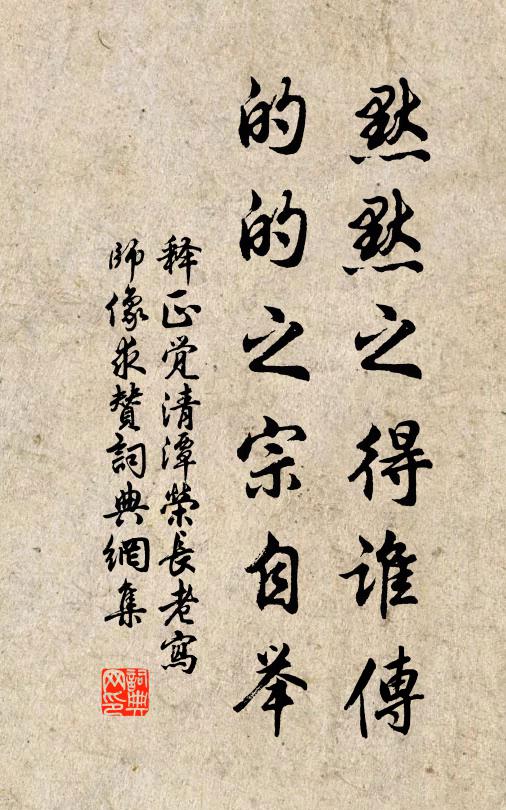 默默之得谁傳
的的之宗自举
释正觉清潭榮長老寫
師像求贊詞典網集
詞典
网印